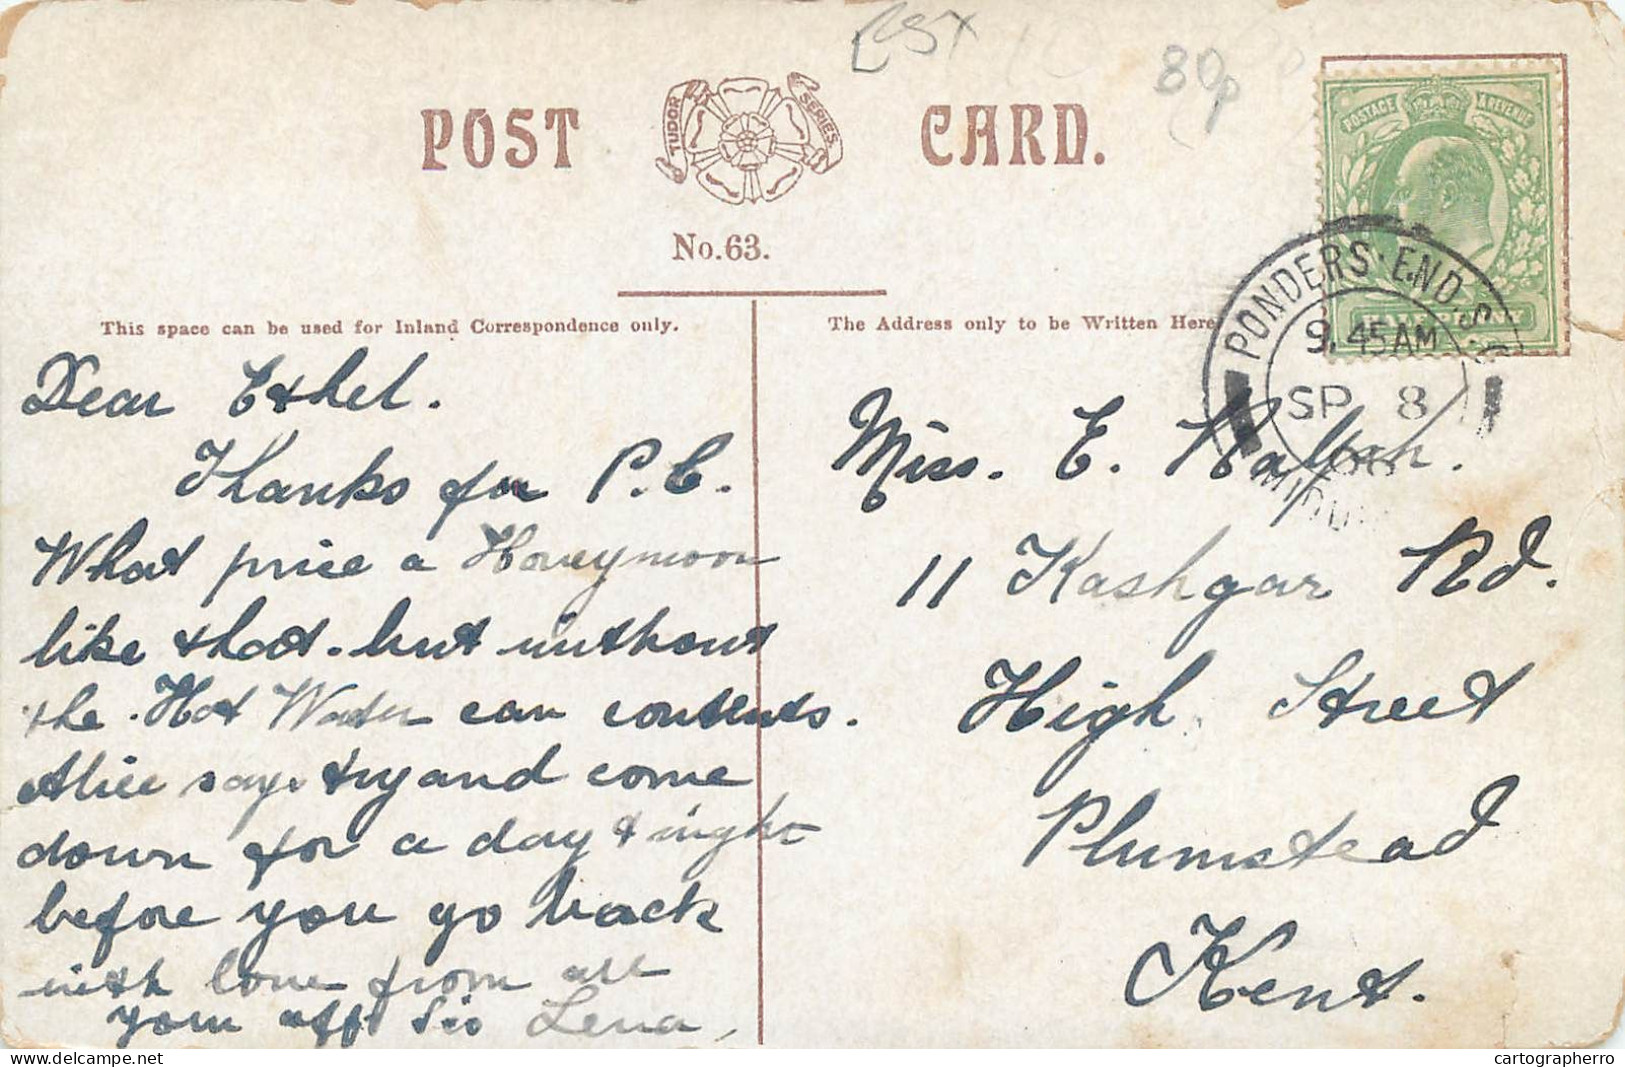 EST
80p
POST CARD.
TUDOR SERIES
No.63.
POSTAGE & REVENUE
HALFPENNY
PONDERS·END S.O
9.45AM
SP 8
MIDDX
This space can be used for Inland Correspondence only.
The Address only to be Written Here
Dear Ethel.
Thanks for P.C.
What price a Honeymoon
like that. but without
the Hot Water can contents.
Alice says try and come
down for a day & night
before you go back
with love from all
your aff Sis Lena,
Miss. E.
11 Kashgar Rd.
High Street
Plumstead
Kent.
cartographerro